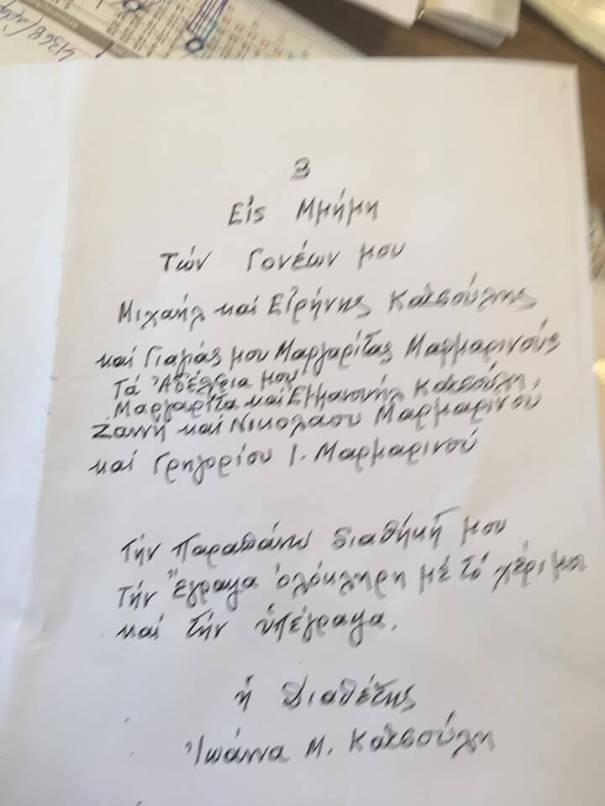 4368
3
Εἰς Μνήμη
Τῶν Γονέων μου
Μιχαήλ καί Εἰρήνης Κατσούλης
καί Γιαγιάς μου Μαργαρίτας Μαρμαρινούς
Τά Ἀδέλφια μου
Μαργαρίτα καί Εμμανουήλ Κατσούλη,
Ζαννή καί Νικολάου Μαρμαρινού
καί Γρηγορίου Ι. Μαρμαρινού
Τήν Παραπάνω διαθήκη μου
Τήν Ἔγραψα ὁλόκληρη μέ τό χέρι μου
καί τήν ὑπέγραψα.
ἡ Διαθέτης
Ἰωάννα Μ. Κατσούλη